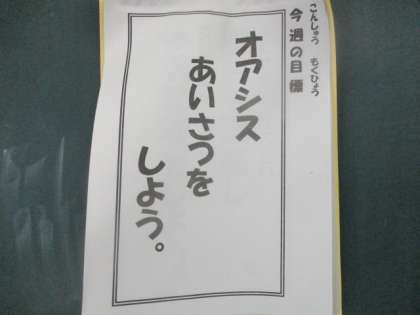 こんしゅう もくひょう
今週の目標
オアシス
あいさつを
しよう。